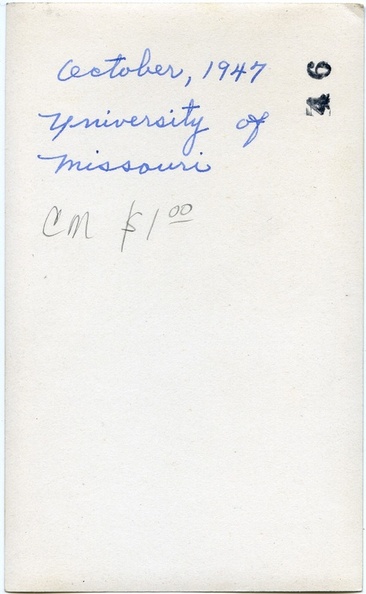 October, 1947
University of
Missouri
CM $1.00
6